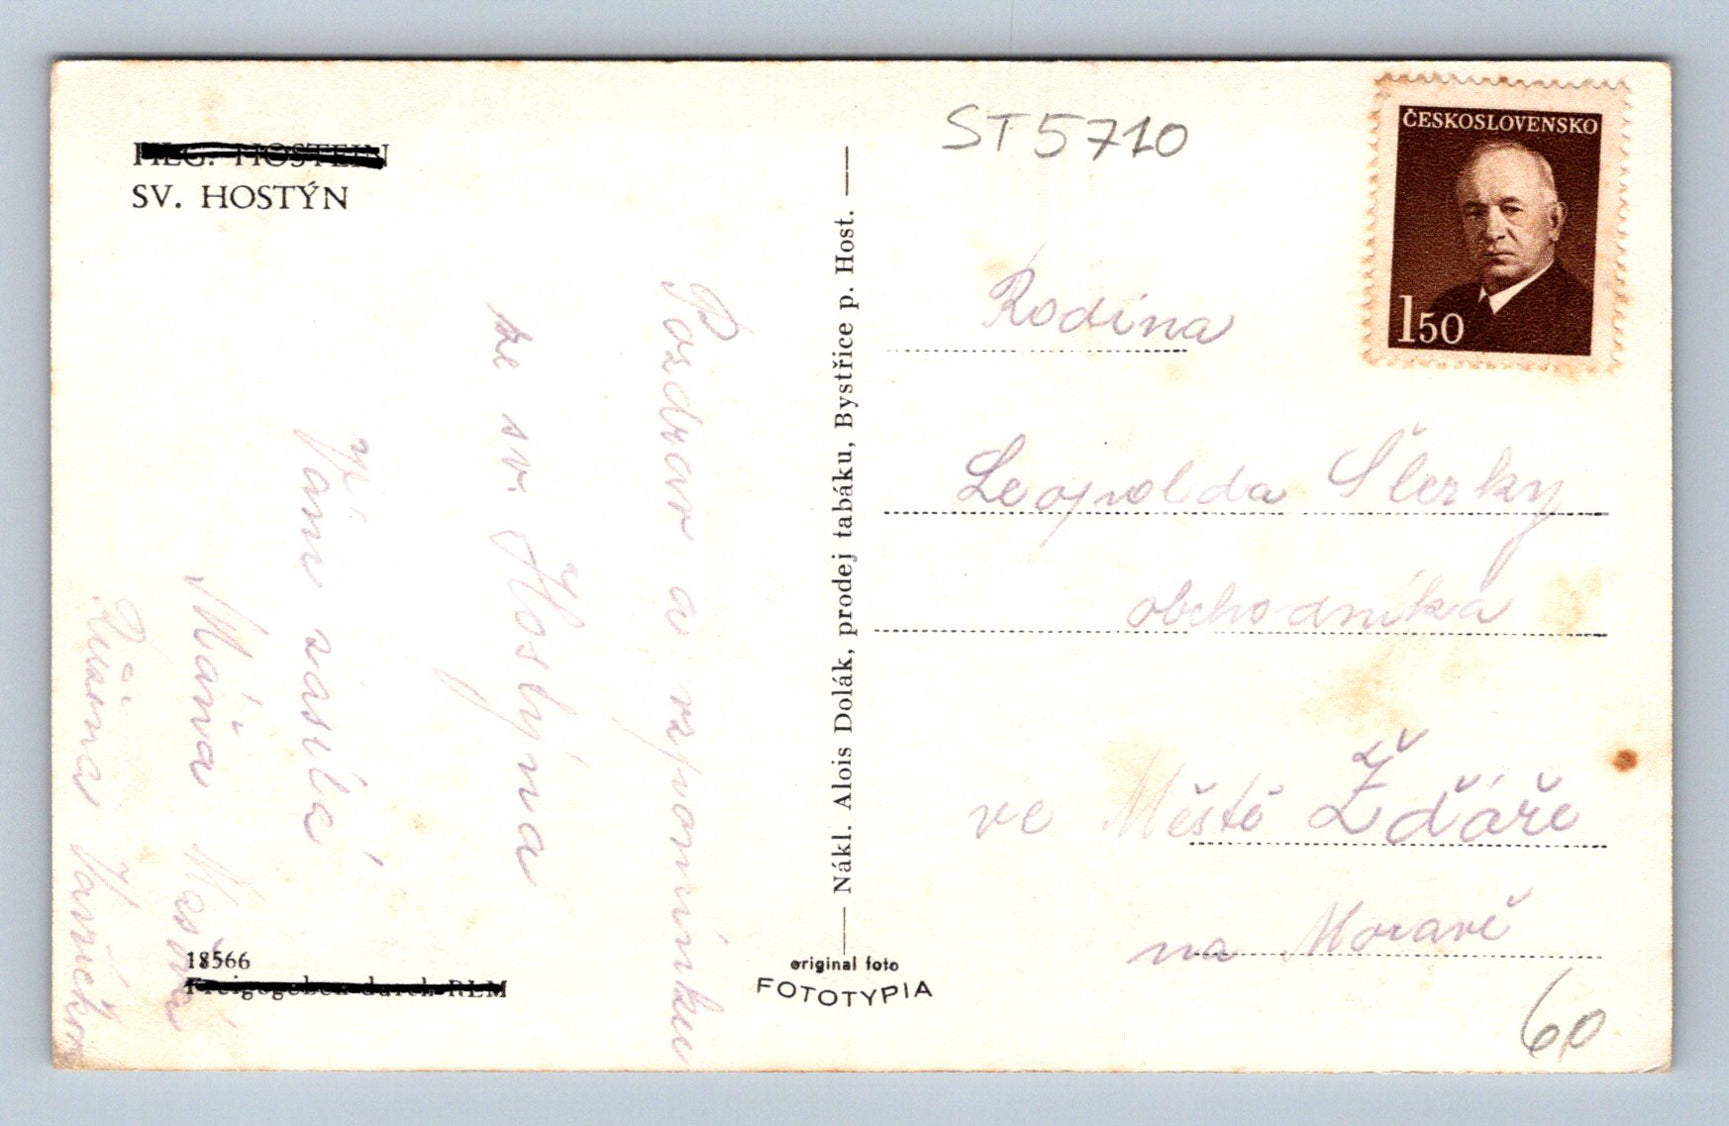 HLG. HOSTEIN
SV. HOSTÝN
Pozdrav a vzpomínku
ze sv. Hostýna
Vám zasílá
Máňa
Růžena
18566
Freigegeben durch RLM
Nákl. Alois Dolák, prodej tabáku, Bystřice p. Host.
original foto
FOTOTYPIA
ST5710
ČESKOSLOVENSKO
1 50
Rodina
Leopolda Šlerky
obchodníka
ve Městě Žďáře
na Moravě
60